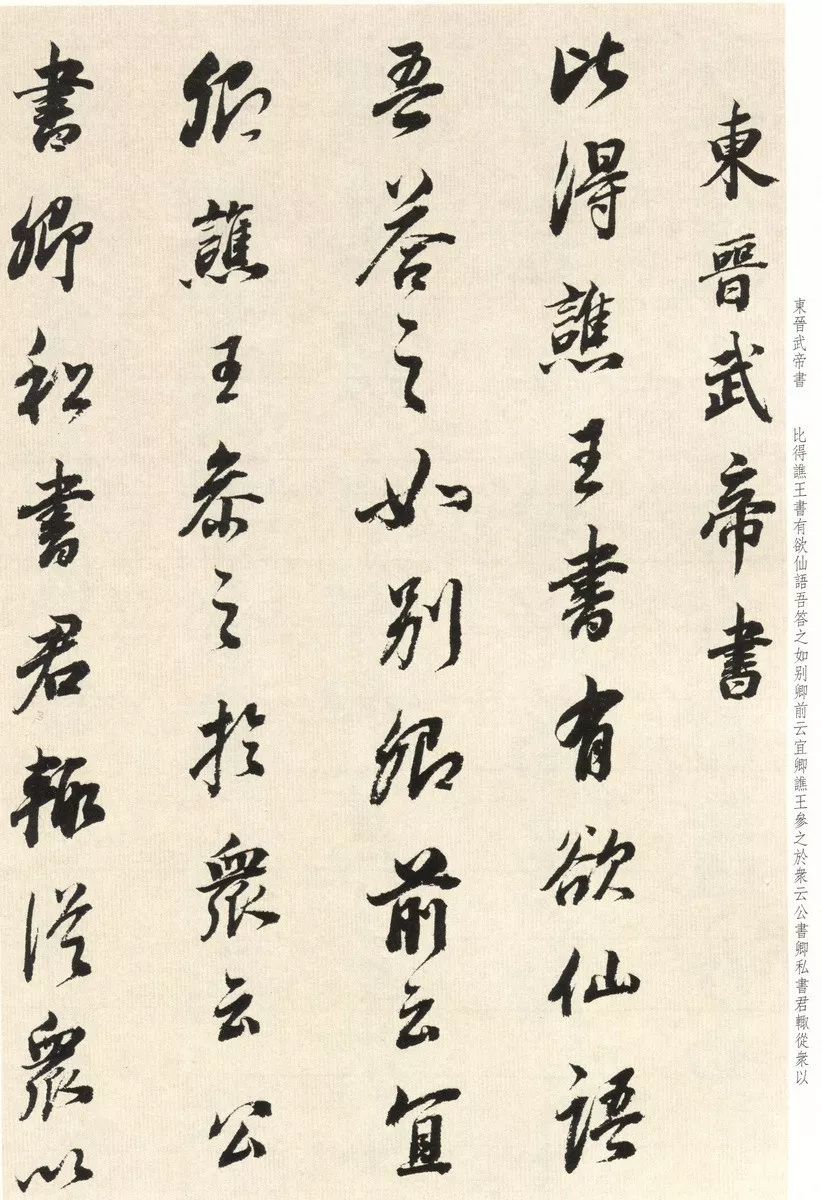 東晉武帝書
比得譙王書有欲仙語
吾答之如别卿前云宜
卿譙王參之於衆云公
書卿私書君輙從衆以
東晉武帝書 比得譙王書有欲仙語吾答之如别卿前云宜卿譙王參之於衆云公書卿私書君輙從衆以